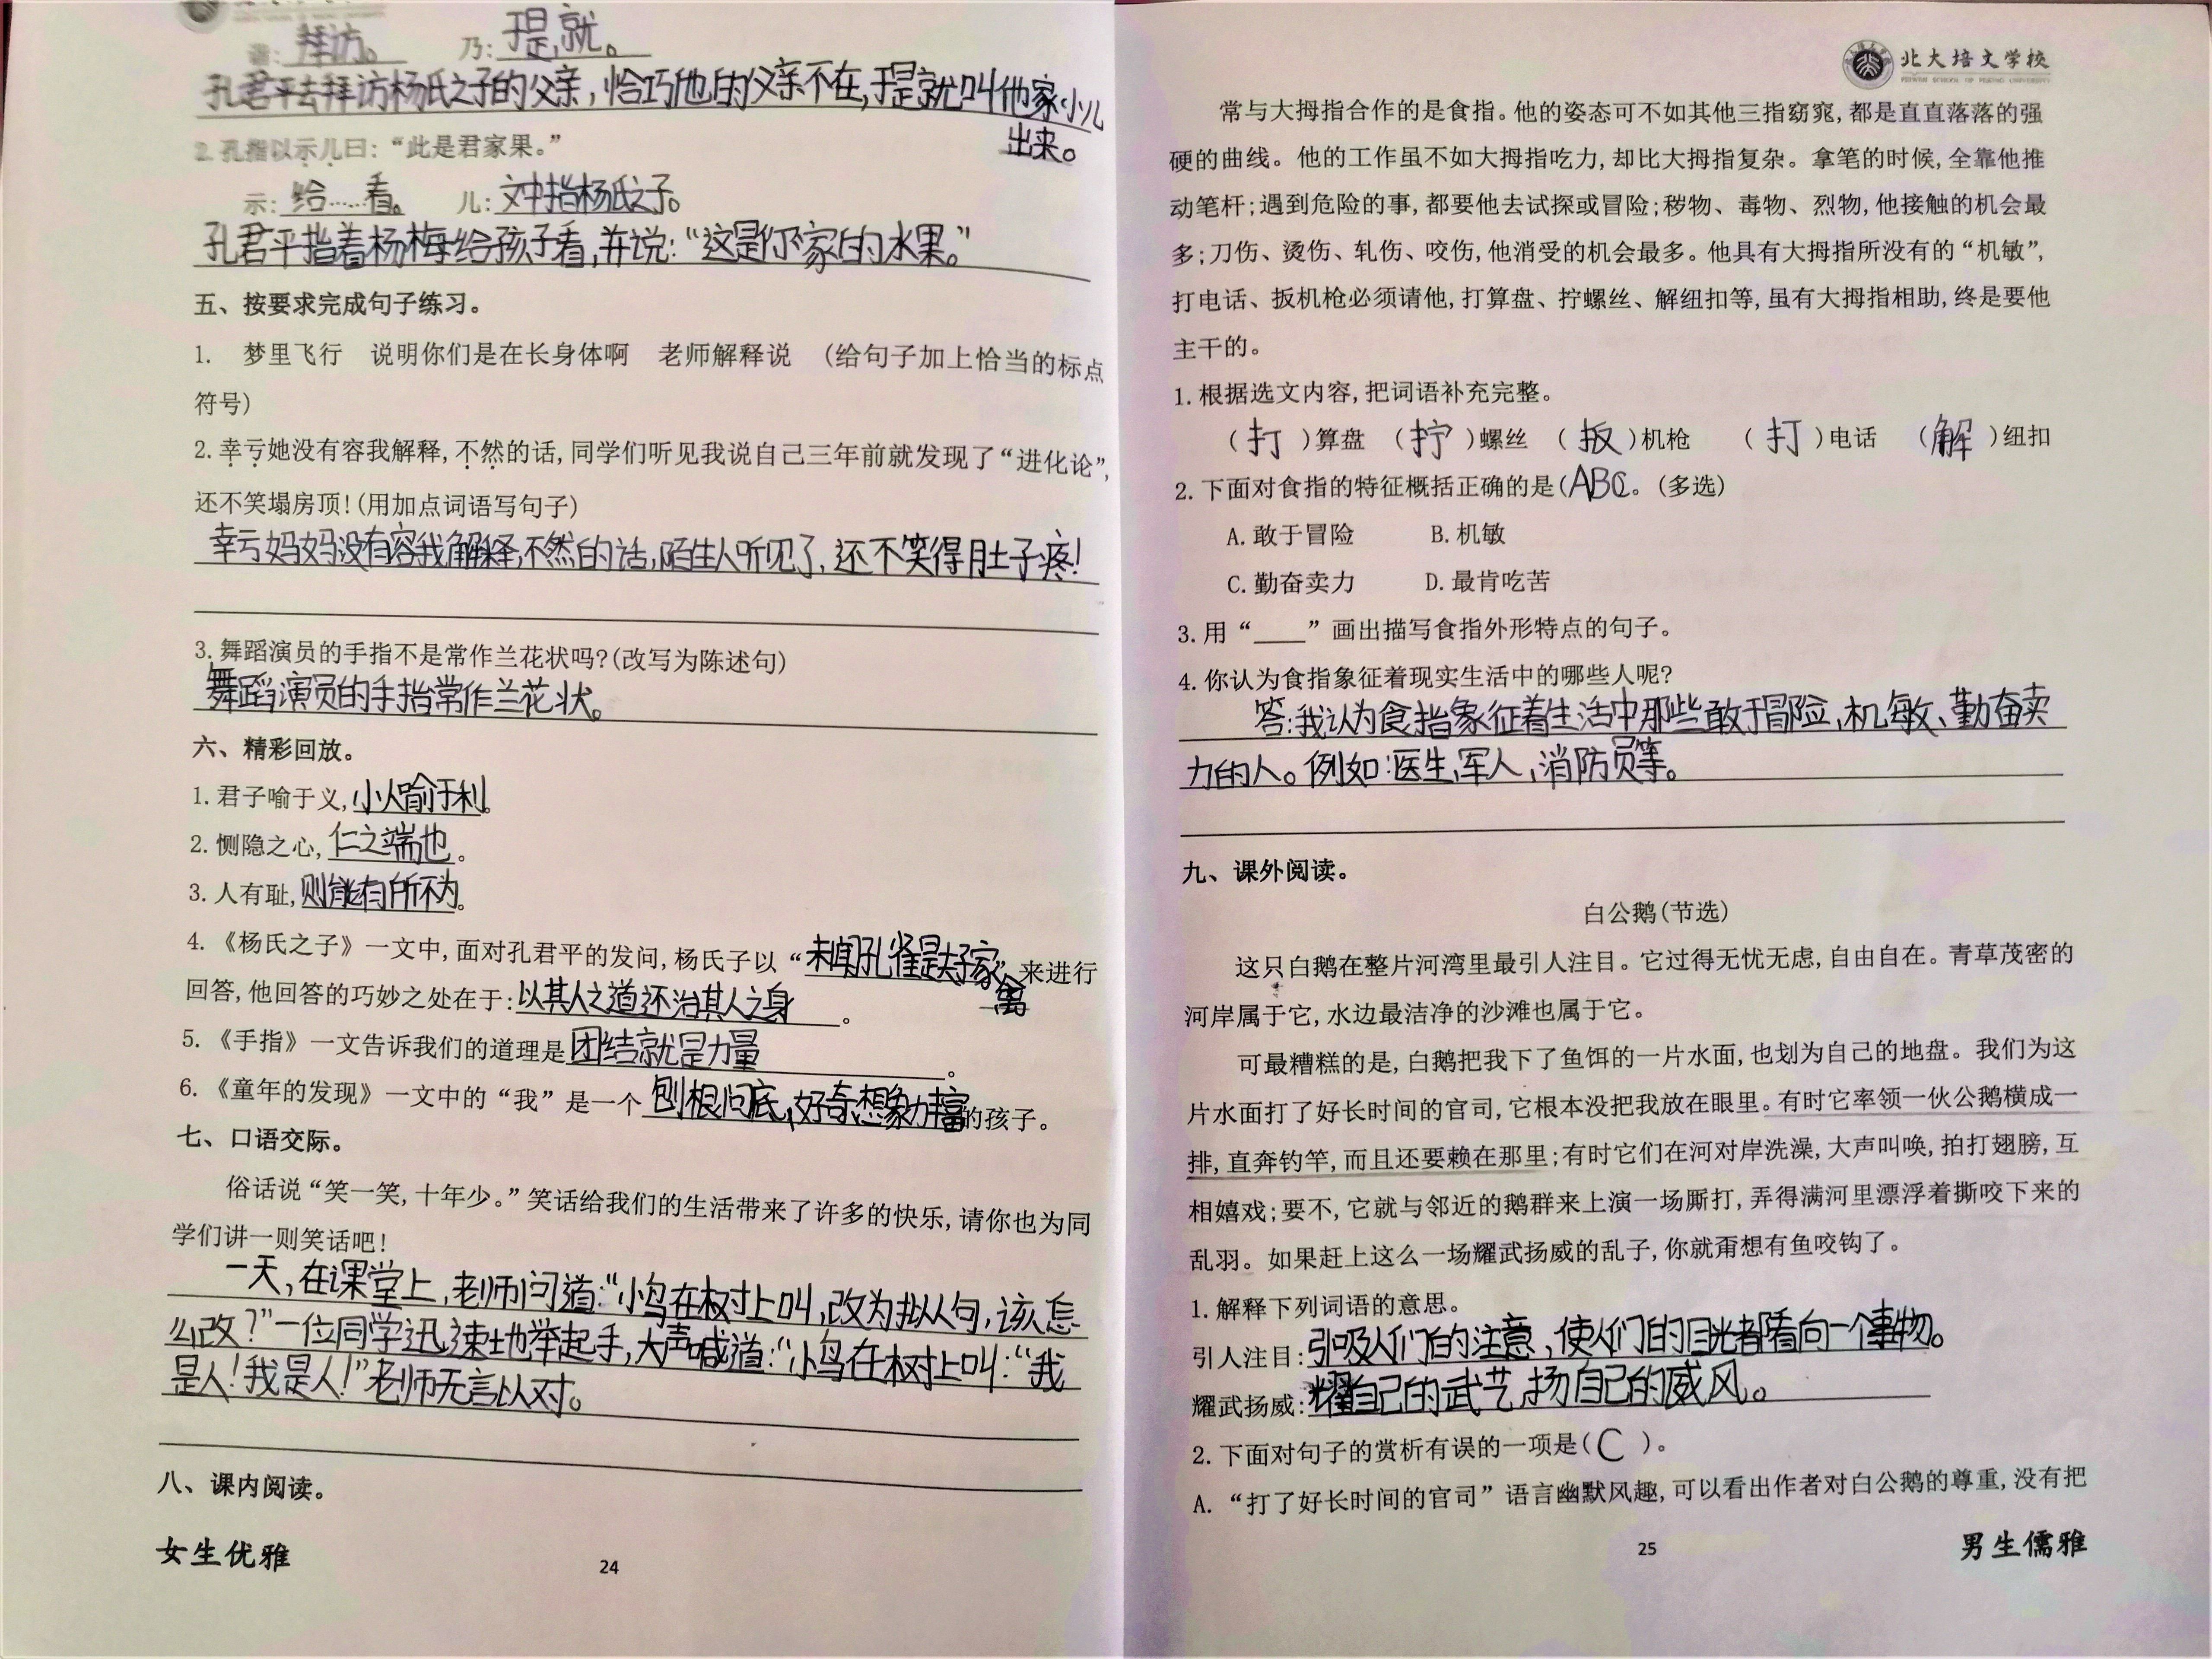 谐: 拜访。 乃: 于是,就。
孔君平去拜访杨氏之子的父亲,恰巧他的父亲不在,于是就叫他家小儿
出来。
2.孔指以示儿曰:“此是君家果。”
示: 给……看。 儿: 文中指杨氏之子。
孔君平指着杨梅给孩子看,并说:“这是你家的水果。”
五、按要求完成句子练习。
1. 梦里飞行 说明你们是在长身体啊 老师解释说 (给句子加上恰当的标点
符号)
2.幸亏她没有容我解释,不然的话,同学们听见我说自己三年前就发现了“进化论”,
还不笑塌房顶!(用加点词语写句子)
幸亏妈妈没有容我解释,不然的话,陌生人听见了,还不笑得肚子疼!
3.舞蹈演员的手指不是常作兰花状吗?(改写为陈述句)
舞蹈演员的手指常作兰花状。
六、精彩回放。
1.君子喻于义,小人喻于利。
2.恻隐之心,仁之端也。
3.人有耻,则能有所不为。
4.《杨氏之子》一文中,面对孔君平的发问,杨氏子以“未闻孔雀是夫子家禽”来进行
回答,他回答的巧妙之处在于:以其人之道还治其人之身。
5.《手指》一文告诉我们的道理是团结就是力量。
6.《童年的发现》一文中的“我”是一个刨根问底,好奇,想象力丰富的孩子。
七、口语交际。
俗话说“笑一笑,十年少。”笑话给我们的生活带来了许多的快乐,请你也为同
学们讲一则笑话吧!
一天,在课堂上,老师问道:“小鸟在树上叫,改为拟人句,该怎
么改?”一位同学迅速地举起手,大声喊道:“小鸟在树上叫:“我
是人!我是人!”老师无言以对。
八、课内阅读。
女生优雅
24
北大培文学校
常与大拇指合作的是食指。他的姿态可不如其他三指窈窕,都是直直落落的强
硬的曲线。他的工作虽不如大拇指吃力,却比大拇指复杂。拿笔的时候,全靠他推
动笔杆;遇到危险的事,都要他去试探或冒险;秽物、毒物、烈物,他接触的机会最
多;刀伤、烫伤、轧伤、咬伤,他消受的机会最多。他具有大拇指所没有的“机敏”,
打电话、扳机枪必须请他,打算盘、拧螺丝、解纽扣等,虽有大拇指相助,终是要他
主干的。
1.根据选文内容,把词语补充完整。
(打)算盘 (拧)螺丝 (扳)机枪 (打)电话 (解)纽扣
2.下面对食指的特征概括正确的是(ABC。(多选)
A.敢于冒险 B.机敏
C.勤奋卖力 D.最肯吃苦
3.用“____”画出描写食指外形特点的句子。
4.你认为食指象征着现实生活中的哪些人呢?
答:我认为食指象征着生活中那些敢于冒险,机敏、勤奋卖
力的人。例如:医生,军人,消防员等。
九、课外阅读。
白公鹅(节选)
这只白鹅在整片河湾里最引人注目。它过得无忧无虑,自由自在。青草茂密的
河岸属于它,水边最洁净的沙滩也属于它。
可最糟糕的是,白鹅把我下了鱼饵的一片水面,也划为自己的地盘。我们为这
片水面打了好长时间的官司,它根本没把我放在眼里。有时它率领一伙公鹅横成一
排,直奔钓竿,而且还要赖在那里;有时它们在河对岸洗澡,大声叫唤,拍打翅膀,互
相嬉戏;要不,它就与邻近的鹅群来上演一场厮打,弄得满河里漂浮着撕咬下来的
乱羽。如果赶上这么一场耀武扬威的乱子,你就甭想有鱼咬钩了。
1.解释下列词语的意思。
引人注目:引吸人们的注意,使人们的目光都看向一个事物。
耀武扬威:耀自己的武艺,扬自己的威风。
2.下面对句子的赏析有误的一项是(C)。
A.“打了好长时间的官司”语言幽默风趣,可以看出作者对白公鹅的尊重,没有把
25
男生儒雅